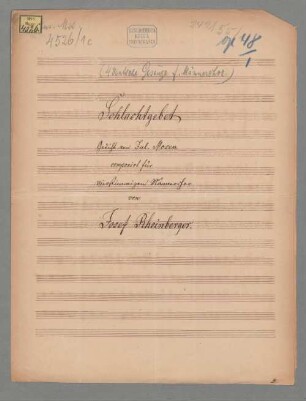 4526/1c
op 48
1
(4 deutsche Gesänge f. Männerchor)
Schlachtgebet
Gedicht von Jul. Mosen
componirt für
vierstimmigen Männerchor
von
Josef Rheinberger.